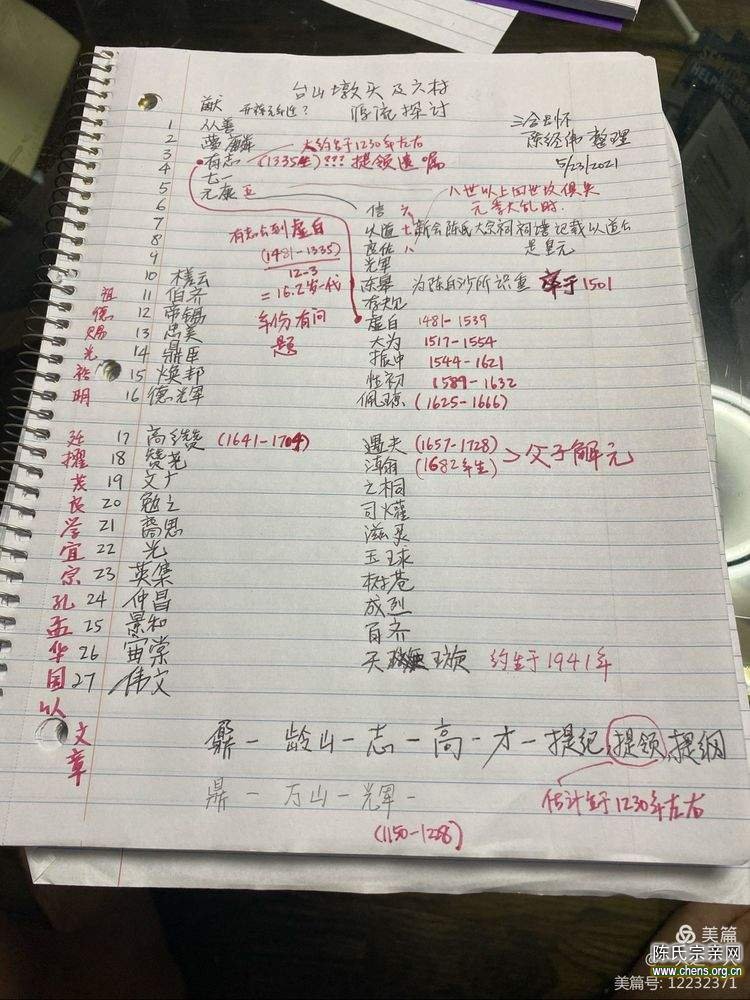 台山墩头及六村
猷 开族之年近？ 源流探讨
三合出怀
陈经伟 整理
5/23/2021
1 从善
2 麟 大约生于1230年左右
3 有志 (1335生)??? 提领遗嘱
4 七一
5 元康
6 信 六 八世以上四世坟俱失
元季大乱时.
7 以道 七 新会陈氏大宗祠祠谱记载以道公
是皇元
8 良佐 八
有志公到虚白
(1481-1335)
12-3
=16.2岁一代
年份有问
题
9 光军
10 槎云 陈皋 为陈白沙所识重 卒于1501
祖 11 伯齐
德 12 帝锡 虚白 1481-1539
赐 13 忠美 大为 1517-1554
光 14 鼎臣 振中 1544-1621
裕 15 焕邦 性初 1589-1632
明 16 德光军 佩琼 (1625-1666)
廷 17 高赞 (1641-1704) 遇夫 (1657-1728)
擢 18 赞尧 海翰 (1682年生) >父子解元
茂 19 文广 之桐
良 20 勉之 司燿
学 21 裔思 滋灵
宜 22 光 玉球
宗 23 英集 树苍
孔 24 仲昌 成烈
孟 25 景和 百齐
华 26 寅棠 天 璇 约生于1941年
国 27 伟文
以
文
章
鼐-龄山-志-高-才-提纪,提领,提纲
估计生于1230年左右
鼎-万山-光军-
(1150-1228)
美篇
陈氏宗亲网
www.chens.org.cn
美篇号: 12232371